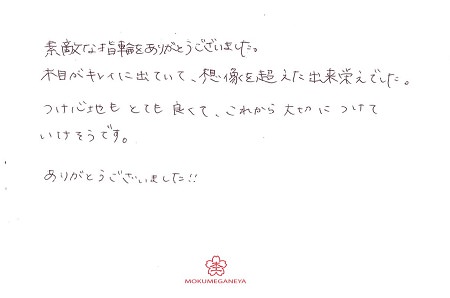 素敵な指輪をありがとうございました。
木目がキレイに出ていて、想像を超えた出来栄えでした。
つけ心地もとても良くて、これから大切につけて
いけそうです。
ありがとうございました!!
MOKUMEGANEYA